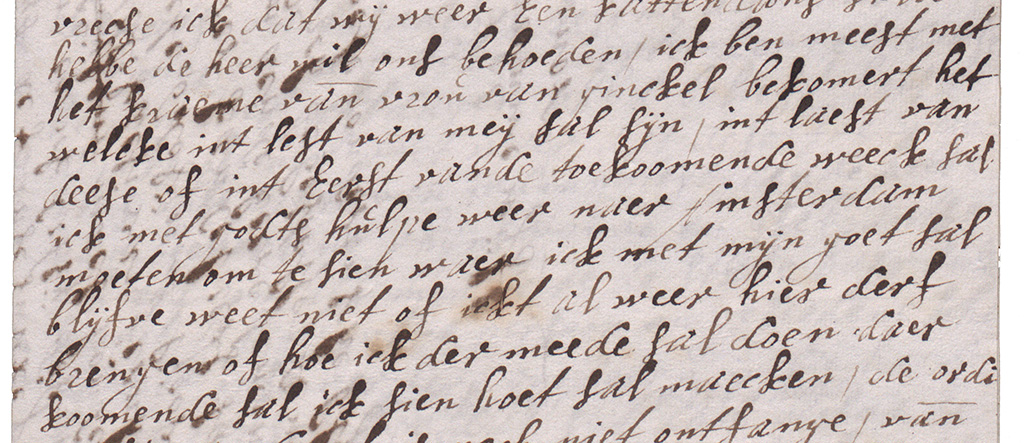 vreese ick dat wij weer Een
hebbe de heer wil ons behoeden / ick ben meest met
het kraeme van vrou van ginckel bekomert het
welcke int lest van meij sal sijn / int laest van
deese of int Eerst vande toekoomende weeck sal
ick met godts hulpe weer naer Amsterdam
moeten om te sien waer ick met mijn goet sal
blijfve weet niet of ickt al weer hier derf
brengen of hoe ick der meede sal doen daer
koomende sal ick sien hoet sal maecken / de ordi
niet ontfange / van